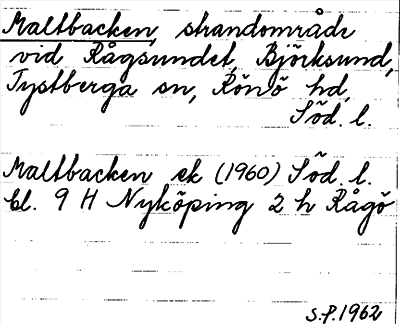 Maltbacken, strandområde
vid Rågsundet, Björksund,
Tystberga sn, Rönö hd,
Söd. l.
Maltbacken ek (1960) Söd. l.
bl. 9 H Nyköping 2 h Rågö
S.P. 1962